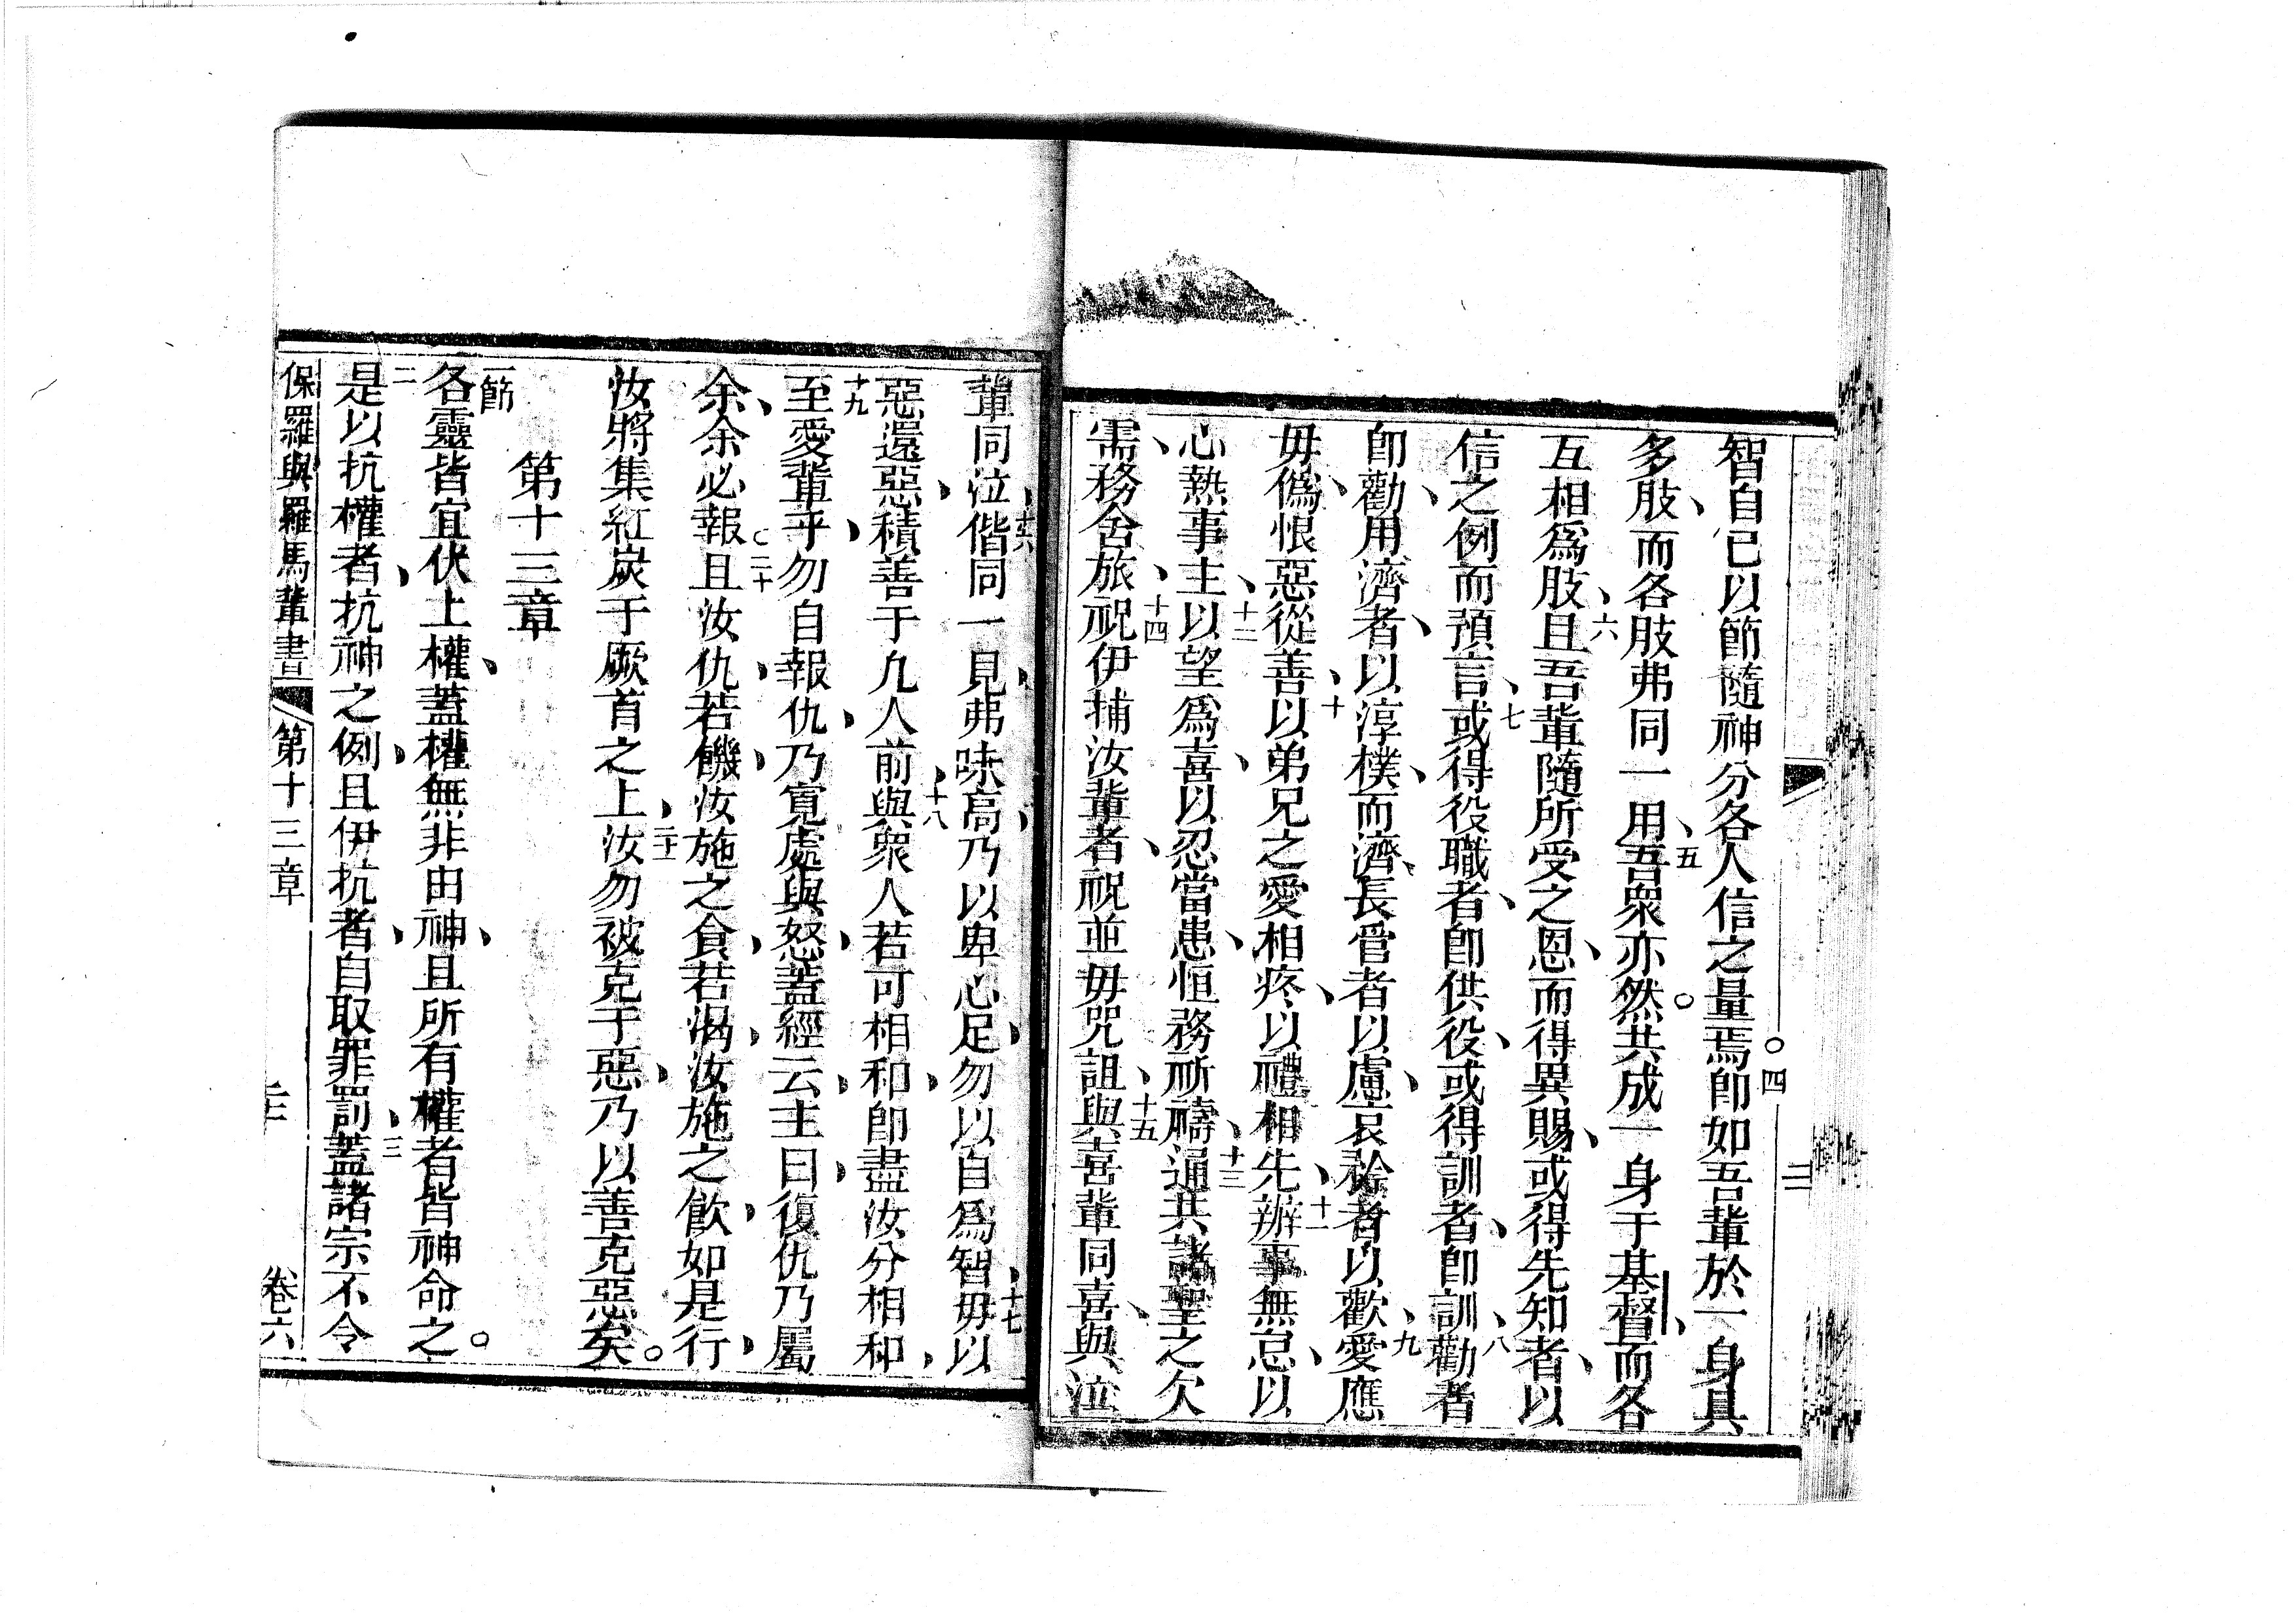 智自己以節隨神分各人信之量焉。四即如吾輩於一身具
多肢、而各肢弗同一用、五吾衆亦然。共成一身于基督、而各
互相爲肢、六且吾輩隨所受之恩、而得異賜、或得先知者、以
信之例而預言、七或得役職者、即供役、或得訓者、即訓、八勸者
即勸、用濟者、以淳樸而濟、長管者以慮、哀矜者以歡、九愛應
毋僞、恨惡從善、十以弟兄之愛相疼、以禮相先、十一辦事無怠、以
心熱事主、十二以望爲喜、以忍當患、恒務祈禱、十三通共諸聖之欠
需、務舍旅、十四祝伊捕汝輩者、祝並毋咒詛、十五與喜輩同喜、與泣
輩同泣、十六偕同一見、弗味高、乃以卑心足、勿以自爲智、十七毋以
惡還惡、積善于凢人前、十八與衆人若可相和、即盡汝分相和、
十九至愛輩乎、勿自報仇、乃寬處與怒、蓋經云、主曰、復仇乃屬
余、余必報。二十且汝仇、若饑、汝施之食、若渴、汝施之飲、如是行、
汝將集紅炭于厥首之上、二十一汝勿被克于惡、乃以善克惡矣。
第十三章
一節各靈皆宜伏上權、蓋權無非由神、且所有權者皆神命之。
二是以抗權者、抗神之例、且伊抗者、自取罪罰、三蓋諸宗不令
保羅與羅馬輩書 第十三章 卷六